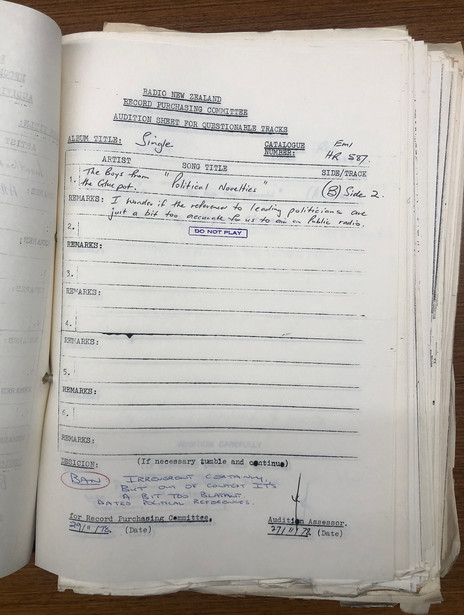 RADIO NEW ZEALAND
RECORD PURCHASING COMMITTEE
AUDITION SHEET FOR QUESTIONABLE TRACKS
ALBUM TITLE: Single CATALOGUE NUMBER: EMI HR 587.
ARTIST SONG TITLE SIDE/TRACK
1. The Boys from the Glue pot. "Political Novelties" (B) Side 2.
REMARKS: I wonder if the reference to leading politicians are
just a bit too accurate for us to air on Public radio.
2. DO NOT PLAY
REMARKS:
3.
REMARKS:
4.
REMARKS:
5.
REMARKS:
6.
REMARKS:
DESICION: (If necessary tumble and continue)
BAN IRREVERENT CERTAINLY.
BUT OUT OF CONTEXT IT'S
A BIT TOO BLATANT.
DATED POLITICAL REFERENCES.
for Record Purchasing Committee. Audition Assessor.
29/11/78. (Date) 27/11/78 (Date)